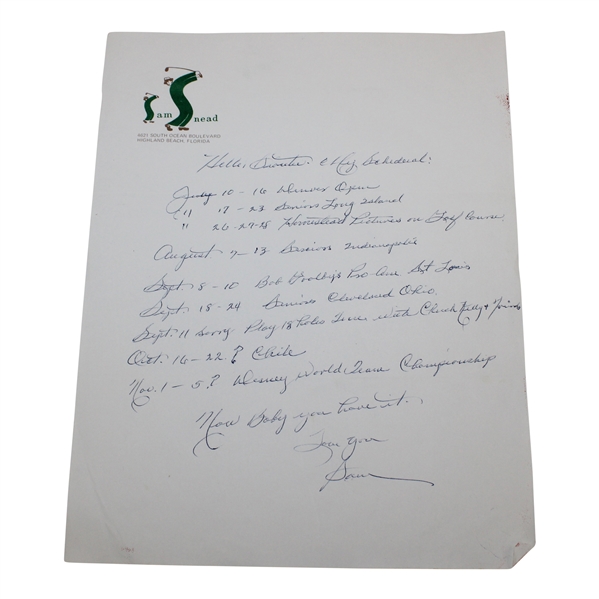 Sam Snead
4621 SOUTH OCEAN BOULEVARD
HIGHLAND BEACH, FLORIDA
Hello Sweetie: My Schedual:
July 10 - 16 Denver Open
" 17 - 23 Seniors Long Island
" 26-27-28 Homestead Pictures on Golf Course
August 7 - 13 Seniors Indianapolis
Sept 8 - 10 Bob Goalby's Pro Am St Louis
Sept. 18 - 24 Seniors Cleveland Ohio.
Sept. 11 Sorry Play 18 holes with Chuck Kelly &
Oct. 16 - 22 ? Chile
Nov. 1 - 5 ? Disney World Team Championship
Now Baby you have it.
Love you
Sam